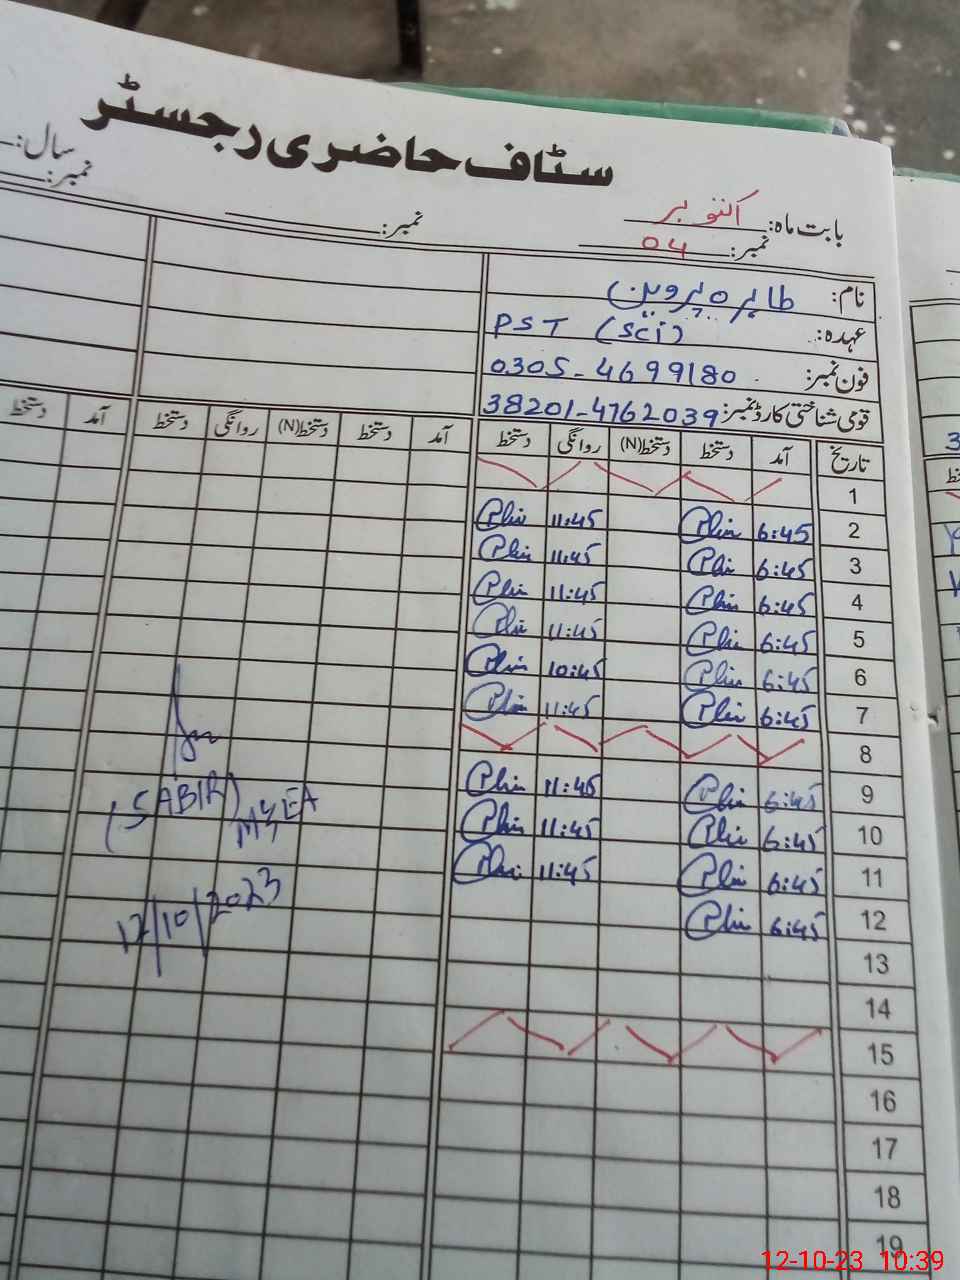 سٹاف حاضری رجسٹر
سال:
نمبر:
بابت ماہ: اکتوبر
نمبر: 04
نمبر:
نام: طاہرہ پروین
عہدہ: PST (Sci)
فون نمبر: 0305-4699180
قومی شناختی کارڈ نمبر: 38201-4762039
تاریخ آمد دستخط دستخط(N) روانگی دستخط آمد دستخط دستخط(N) روانگی دستخط آمد دستخط
1
2 6:45 11:45
3 6:45 11:45
4 6:45 11:45
5 6:45 11:45
6 6:45 10:45
7 6:45 11:45
8
9 6:45 11:45
10 6:45 11:45
11 6:45 11:45
12 6:45
13
14
15
16
17
18
19
(SABIR)
MEA
12/10/2023
12-10-23 10:39